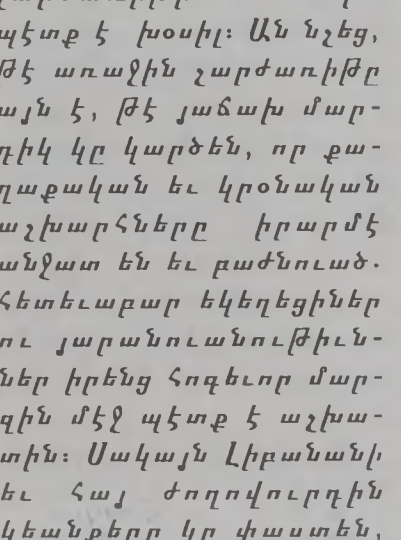 պէտք է խօսիլ։ Ան նշեց,
թէ առաջին շարժառիթը
այն է, թէ յաճախ մար-
դիկ կը կարծեն, որ քա-
ղաքական եւ կրօնական
աշխարհները իրարմէ
անջատ են եւ բաժնուած.
հետեւաբար եկեղեցիներ
ու յարանուանութիւն-
ներ իրենց հոգեւոր մար-
զին մէջ պէտք է աշխա-
տին։ Սակայն Լիբանանի
եւ հայ ժողովուրդին
կեանքերը կը փաստեն,